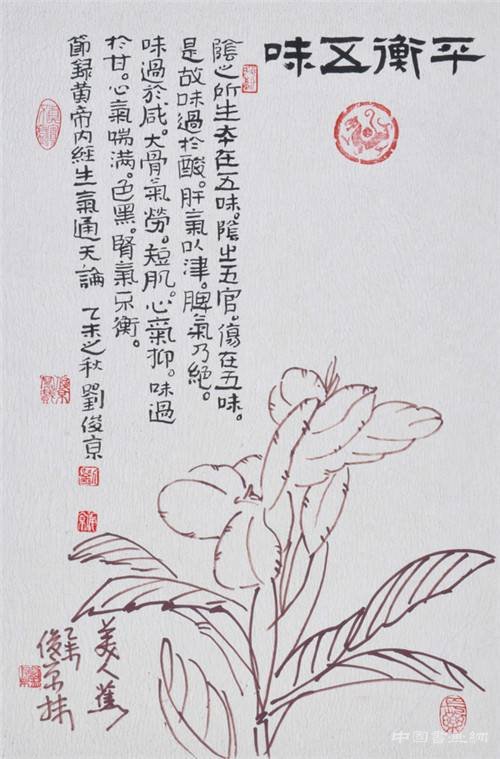 平衡五味
陰之所生本在五味。陰之五官。傷在五味。
是故味過於酸。肝氣以津。脾氣乃絶。
味過於咸。大骨氣勞。短肌。心氣抑。味過
於甘。心氣喘満。色黑。腎氣不衡。
節録黄帝内經生氣通天論 乙未之秋 劉俊京
美人蕉
乙未
俊京抹
中国書畫網